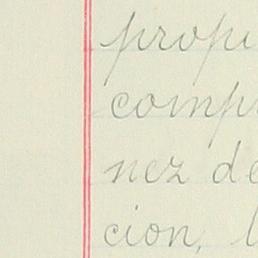 propi
comp
nez de
cion, l